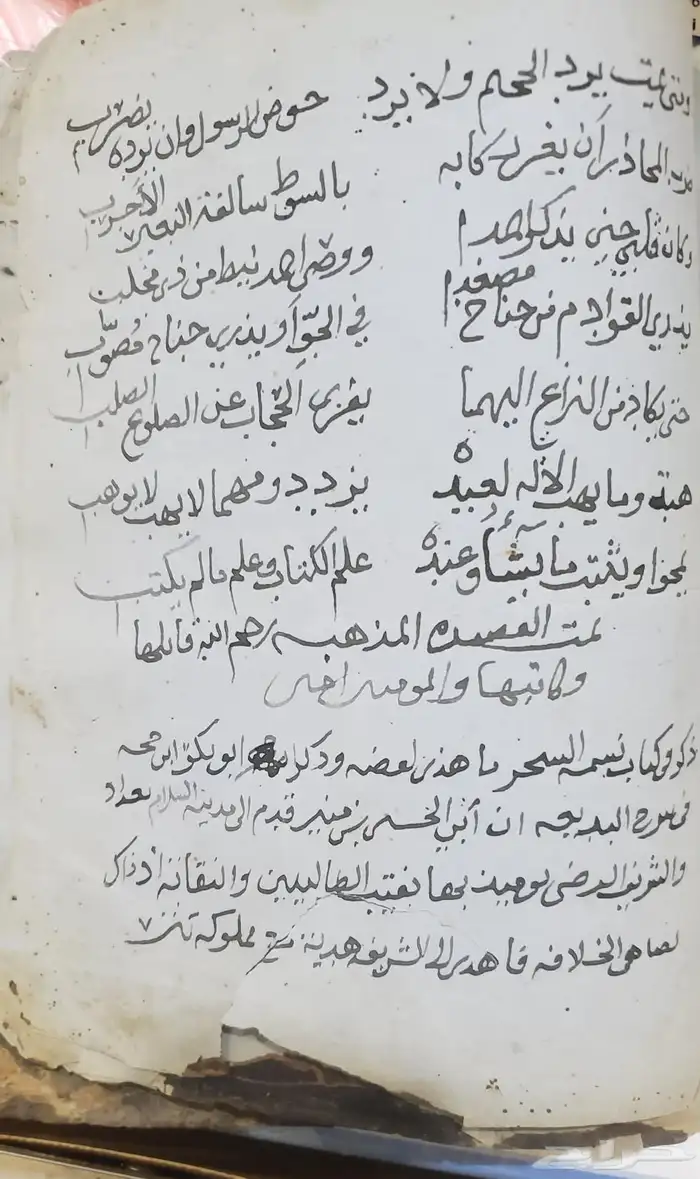 ومتى يمت يرد الجحيم ولا يرد حوض الرسول وان يرده يضرب
ضرب المحاذر ان يغير ركابه بالسوط سالفة البعير الأجرب
وكان قلبي حين يذكر احمدا ووصي احمد نيط من ذي مخلب
بذرى القوادم من جناح مصغدا في الجو او بذرى جناح مصوب
حتى يكاد من النزاع اليهما يفرى الحجاب عن الضلوع الصلب
هبة وما يهب الاله لعبده يزدد ومهما لا يهب لا يوهب
يمحوا ويثبت ما يشآء وعنده علم الكتاب وعلم مالم يكتب
تمت القصيده المذهبه رحم الله قايلها
وكاتبها والمومنين اجمعين
ذكر في كتاب نسمة السحر ما هذا لفضه وذكر ابو بكر ابن حجه
في شرح البديعه ان أبي الحسين بن منير قدم الى مدينة السلام بغداد
والشريف الرضى يوميذ بها نقيب الطالبيين والنقابه اذ ذاك
تضاهي الخلافه فاهدى الى الشريف هدية مع مملوكه تتر